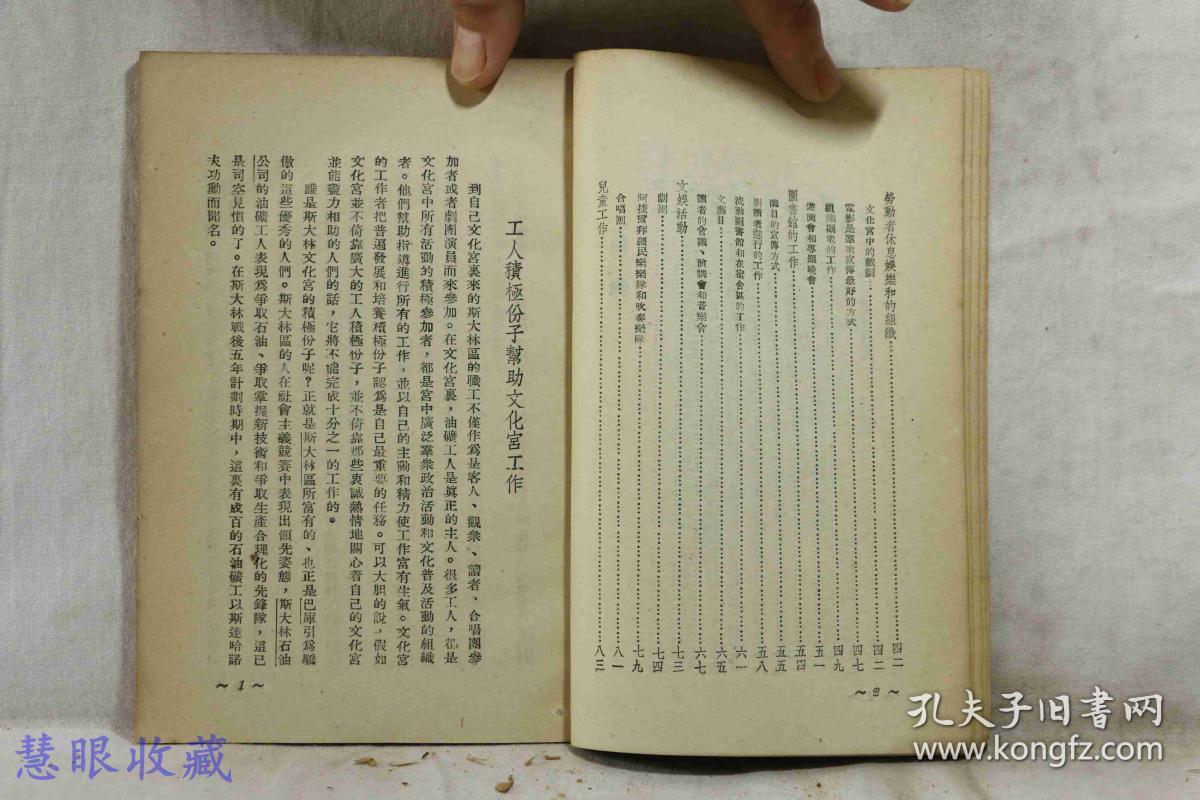 勞動者休息娛樂和的組織……四二
文化宮中的戲劇……四二
電影是羣衆宣傳最好的方式……四七
組織觀衆的工作……四九
遊園會和專題晚會……五一
圖書館的工作……五四
醒目的宣傳方式……五五
對讀者進行的工作……五八
流動圖書館和在宿舍區的工作……六一
文藝日……六五
讀者的會議、演講會和音樂會……六七
文娛活動……七三
劇團……七四
阿捷爾邦疆民樂樂隊和吹奏樂隊……七九
合唱團……八一
兒童工作……八三
~2~
工人積極份子幫助文化宮工作
到自己文化宮裏來的斯大林區的職工不僅作爲是客人、觀衆、讀者、合唱團參
加者或者劇團演員而來參加。在文化宮裏，油礦工人是眞正的主人。很多工人，都是
文化宮中所有活動的積極參加者，都是宮中廣泛羣衆政治活動和文化普及活動的組織
者。他們幫助指導進行所有的工作，並以自己的主動和精力使工作富有生氣。文化宮
的工作者把普遍發展和培養積極份子認爲是自己最重要的任務。可以大胆的說，假如
文化宮並不倚靠廣大的工人積極份子，並不倚靠那些衷誠熱情地關心着自己的文化宮
並能盡力相助的人們的話，它將不能完成十分之一的工作的。
誰是斯大林文化宮的積極份子呢？正就是斯大林區所富有的、也正是巴庫引爲驕
傲的這些優秀的人們。斯大林區的人在社會主義競賽中表現出領先姿態，斯大林石油
公司的油礦工人表現爲爭取石油、爭取掌握新技術和爭取生產合理化的先鋒隊，這已
是司空見慣的了。在斯大林戰後五年計劃時期中，這裏有成百的石油礦工以斯達哈諾
夫功勳而聞名。
~1~
慧眼收藏
孔夫子旧书网
www.kongfz.com